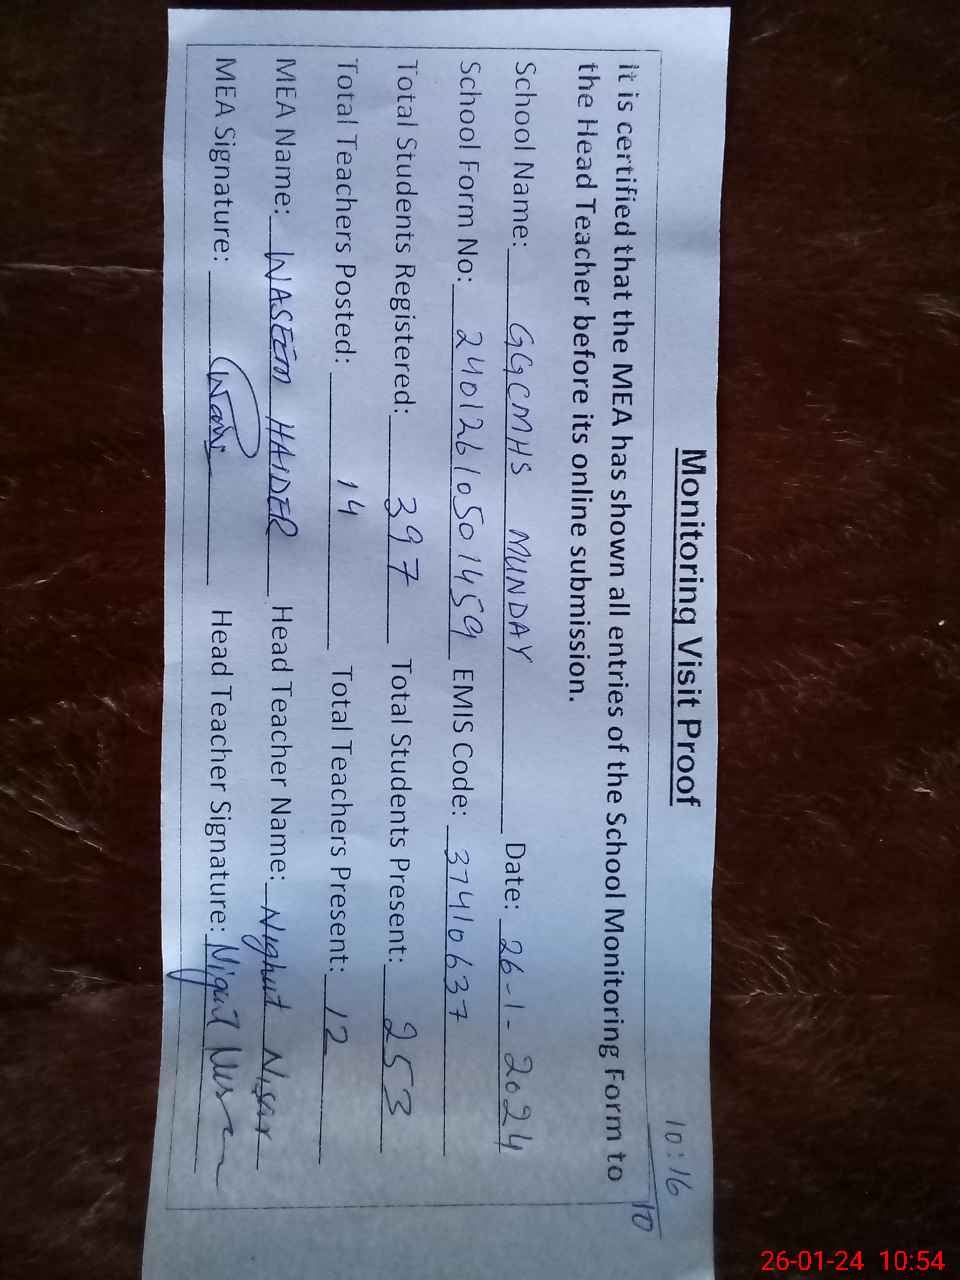 10:16
10
Monitoring Visit Proof
it is certified that the MEA has shown all entries of the School Monitoring Form to
the Head Teacher before its online submission.
School Name: GGCMHS MUNDAY Date: 26-1-2024
School Form No: 24012610501459 EMIS Code: 37410637
Total Students Registered: 397 Total Students Present: 253
Total Teachers Posted: 14 Total Teachers Present: 12
MEA Name: WASEEM HAIDER Head Teacher Name: Nighut Nisar
MEA Signature: Head Teacher Signature:
26-01-24 10:54